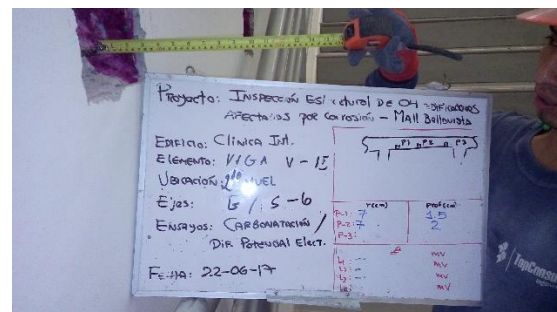 Proyecto: INSPECCIÓN Estructural DE
AFECTADOS POR Corrosión - Mall Bellavista
EDIFICIO: Clínica Int.
ELEMENTO: VIGA V-II
UBICACIÓN: 2do NIVEL
Ejes: G / 5-6
ENSAYOS: CARBONATACIÓN /
DIF POTENCIAL ELECT.
FECHA: 22-06-17
P1 P2 P3
r(cm) Prof(cm)
P-1: 7 1.5
P-2: 7 2
P-3:
mV
L1: - mV
L2: - mV
L3: - mV
mV
TopConsult